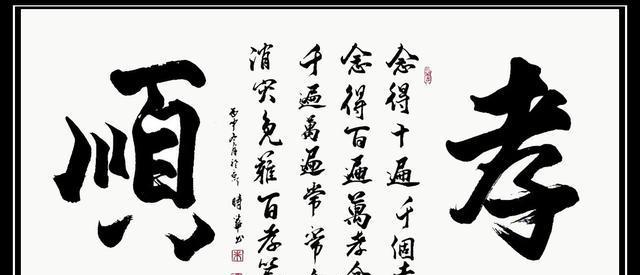 孝
念得十遍千個
念得百遍萬孝
千遍萬遍常常
消灾免難百孝
順